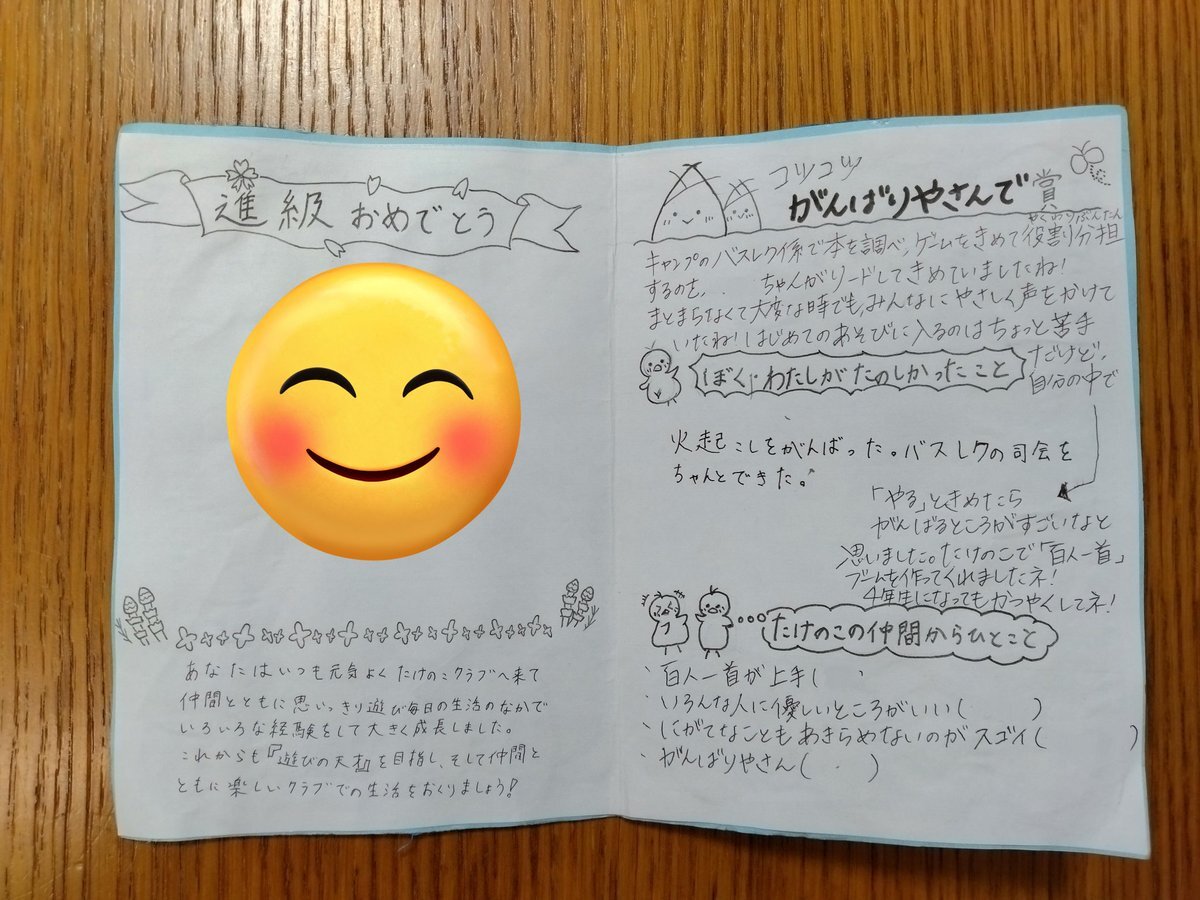 進級おめでとう
あなたはいつも元気よくたけのこクラブへ来て
仲間とともに思いっきり遊び毎日の生活のなかで
いろいろな経験をして大きく成長しました。
これからも『遊びの天才』を目指し、そして仲間と
ともに楽しいクラブでの生活をおくりましょう!
コツコツ
がんばりやさんで賞
やくわりぶんたん
キャンプのバスレク係で本を調べ、ゲームをきめて役割分担
するのを、 ちゃんがリードしてきめていましたね!
まとまらなくて大変な時でも、みんなにやさしく声をかけて
いたね!はじめてのあそびに入るのはちょっと苦手
だけど、
自分の中で
「やる」ときめたら
がんばるところがすごいなと
思いました。たけのこで「百人一首」
ブームを作ってくれましたネ!
4年生になってもかつやくしてネ!
ぼく・わたしがたのしかったこと
火起こしをがんばった。バスレクの司会を
ちゃんとできた。
たけのこの仲間からひとこと
・百人一首が上手(
・いろんな人に優しいところがいい( )
・にがてなこともあきらめないのがスゴイ( )
・がんばりやさん( )